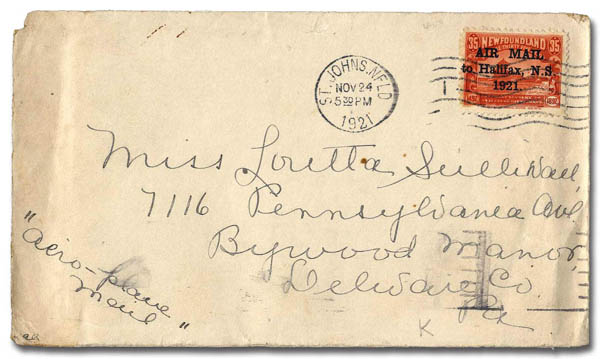 35 NEWFOUNDLAND 35
AIR MAIL
to Halifax, N.S.
1921.
ST. JOHNS. NFLD
NOV 24
5 30 PM
1921
Miss Loretta Sullivan
7116 Pennsylvania Ave
Bywood Manor,
Delware Co
Pa
"Aero-plane
Mail"
K